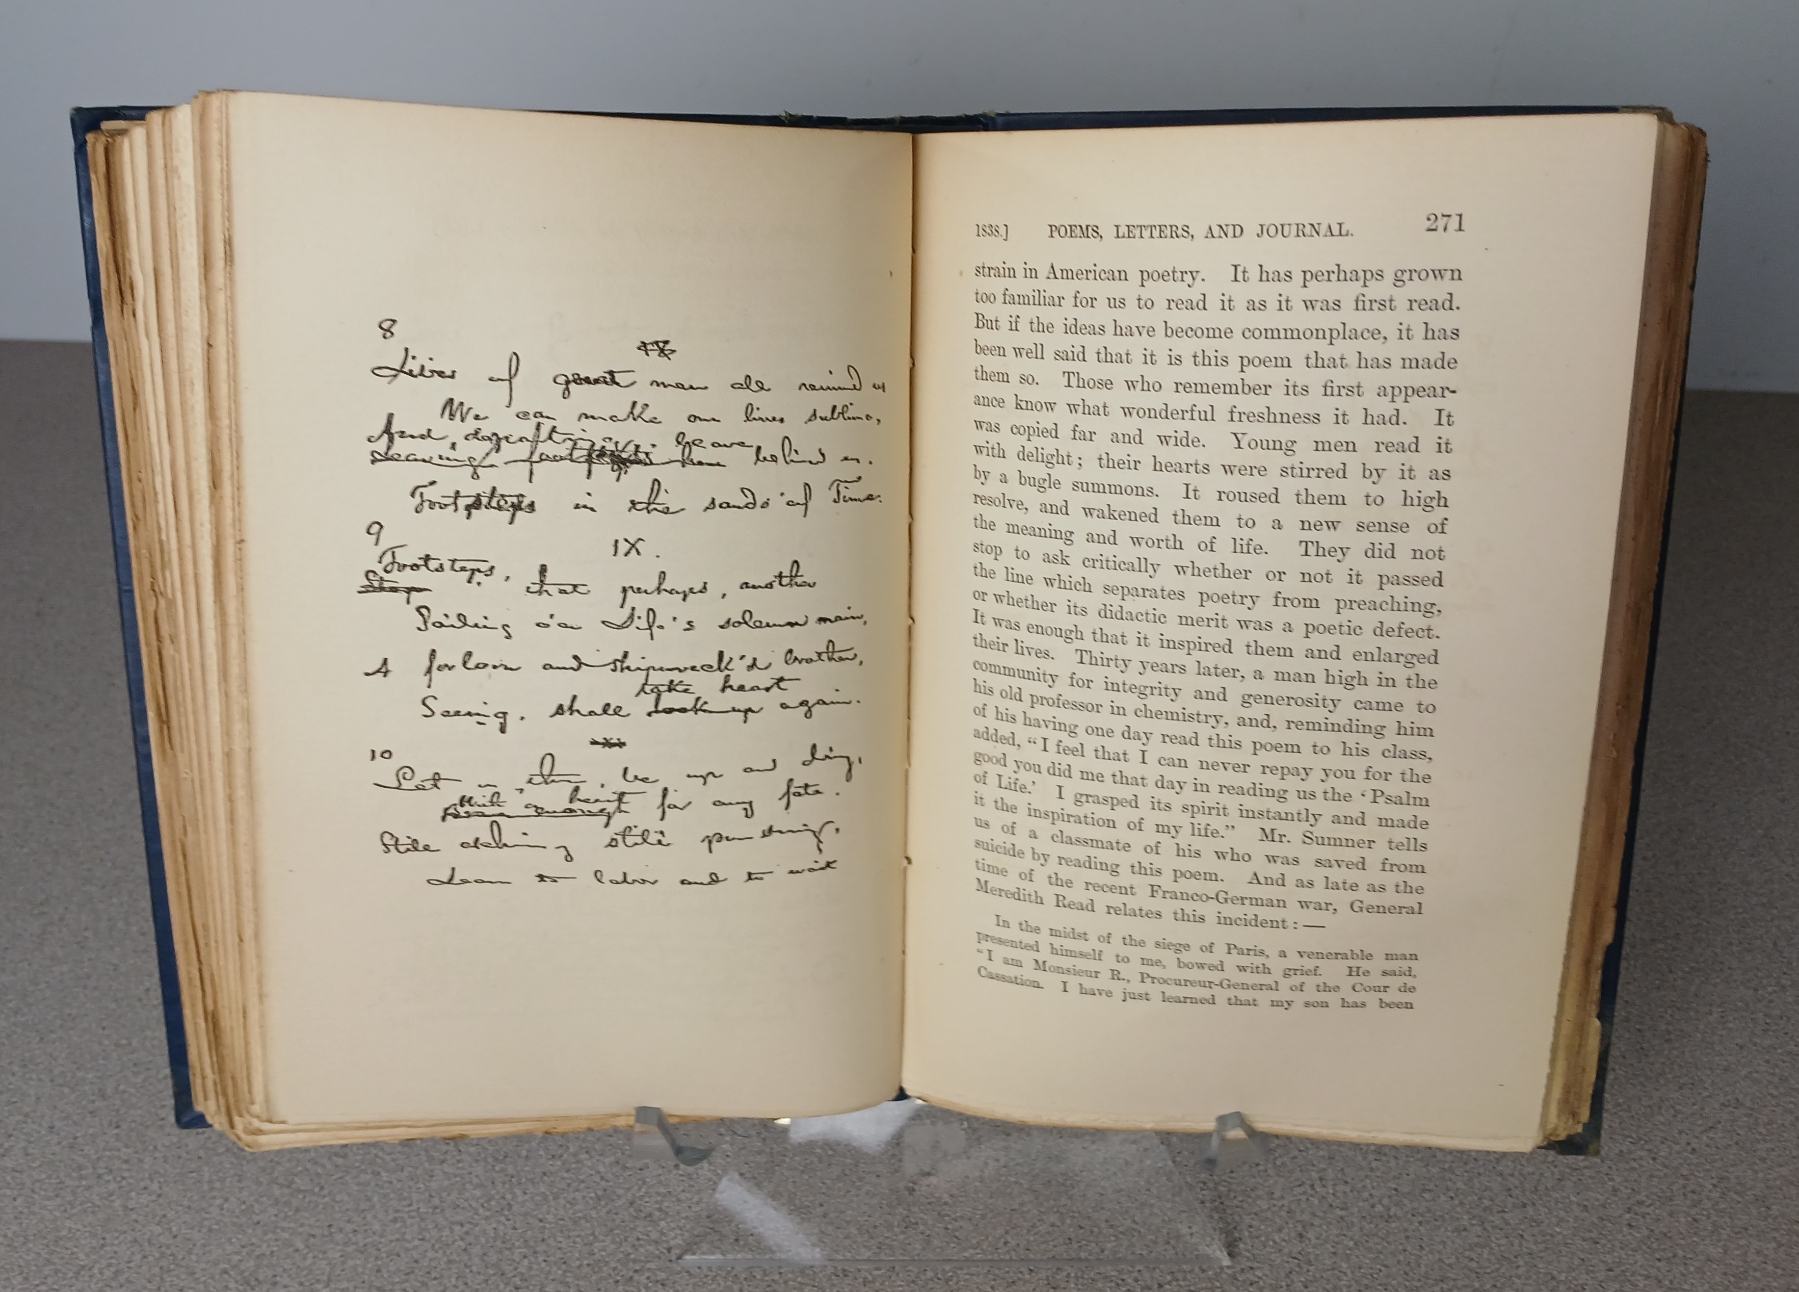 8
Lives of great men all remind us
We can make our lives sublime,
And, departing, leave behind us
Footsteps in the sands of Time.
9
IX.
Footsteps, that perhaps, another
Stop
Sailing o'er Life's solemn main,
A forlorn and shipwreck'd brother,
take heart
Seeing, shall look up again.
10
Let us, then, be up and doing,
With a heart for any fate.
Brave enough
Still achieving still pursuing,
Learn to labor and to wait
1838.] POEMS, LETTERS, AND JOURNAL. 271
strain in American poetry. It has perhaps grown
too familiar for us to read it as it was first read.
But if the ideas have become commonplace, it has
been well said that it is this poem that has made
them so. Those who remember its first appear-
ance know what wonderful freshness it had. It
was copied far and wide. Young men read it
with delight; their hearts were stirred by it as
by a bugle summons. It roused them to high
resolve, and wakened them to a new sense of
the meaning and worth of life. They did not
stop to ask critically whether or not it passed
the line which separates poetry from preaching,
or whether its didactic merit was a poetic defect.
It was enough that it inspired them and enlarged
their lives. Thirty years later, a man high in the
community for integrity and generosity came to
his old professor in chemistry, and, reminding him
of his having one day read this poem to his class,
added, "I feel that I can never repay you for the
good you did me that day in reading us the 'Psalm
of Life.' I grasped its spirit instantly and made
it the inspiration of my life." Mr. Sumner tells
us of a classmate of his who was saved from
suicide by reading this poem. And as late as the
time of the recent Franco-German war, General
Meredith Read relates this incident: —
In the midst of the siege of Paris, a venerable man
presented himself to me, bowed with grief. He said,
"I am Monsieur R., Procureur-General of the Cour de
Cassation. I have just learned that my son has been